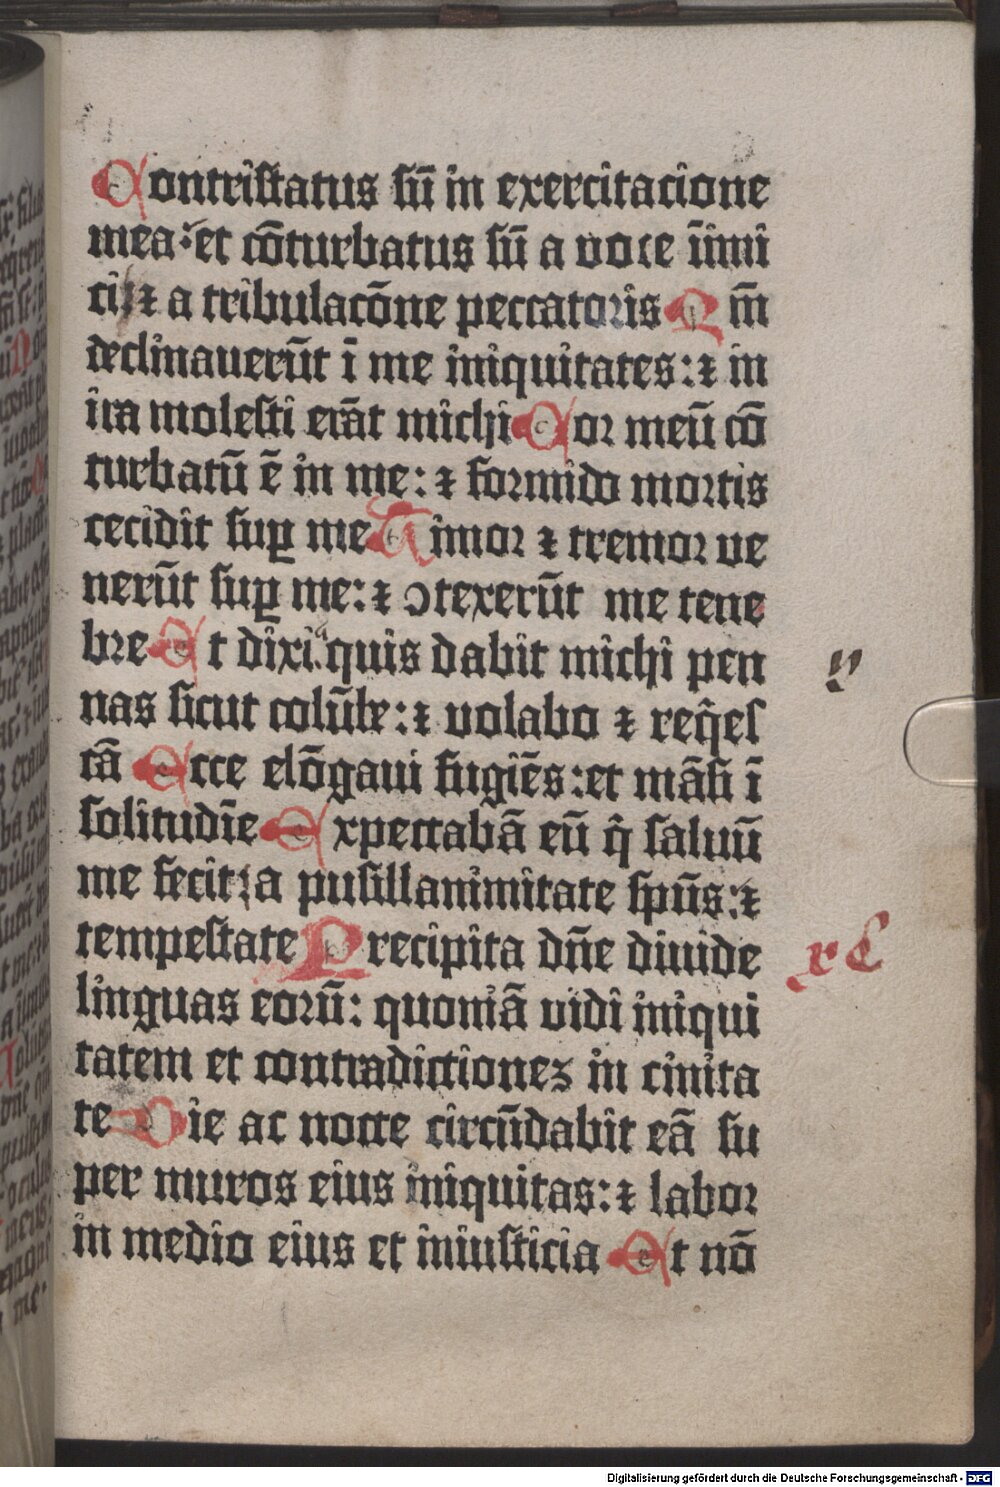 Contristatus sū in exercitacione
mea: et cōturbatus sū a voce īimi
ci: ⁊ a tribulacōne peccatoris Qm̄
declinauerūt ī me iniquitates: ⁊ in
ira molesti erāt michi Cor meū cō
turbatū ē in me: ⁊ formido mortis
cecidit suꝑ me Timor ⁊ tremor ve
nerūt suꝑ me: ⁊ ↄtexerūt me tene
bre Et dixi quis dabit michi pen
nas sicut colūbe: ⁊ volabo ⁊ req̄es
cā Ecce elōgaui fugiēs: et māsi ī
solitudīe Expectabā eū q̄ saluū
me fecit: a pusillanimitate sp̄us: ⁊
tempestate Precipita dn̄e diuide
linguas eorū: quoniā vidi iniqui
tatem et contradictionez in ciuita
te Die ac nocte circūdabit eā su
per muros eius iniquitas: ⁊ labor
in medio eius et iniusticia Et nō
Digitalisierung gefördert durch die Deutsche Forschungsgemeinschaft - DFG